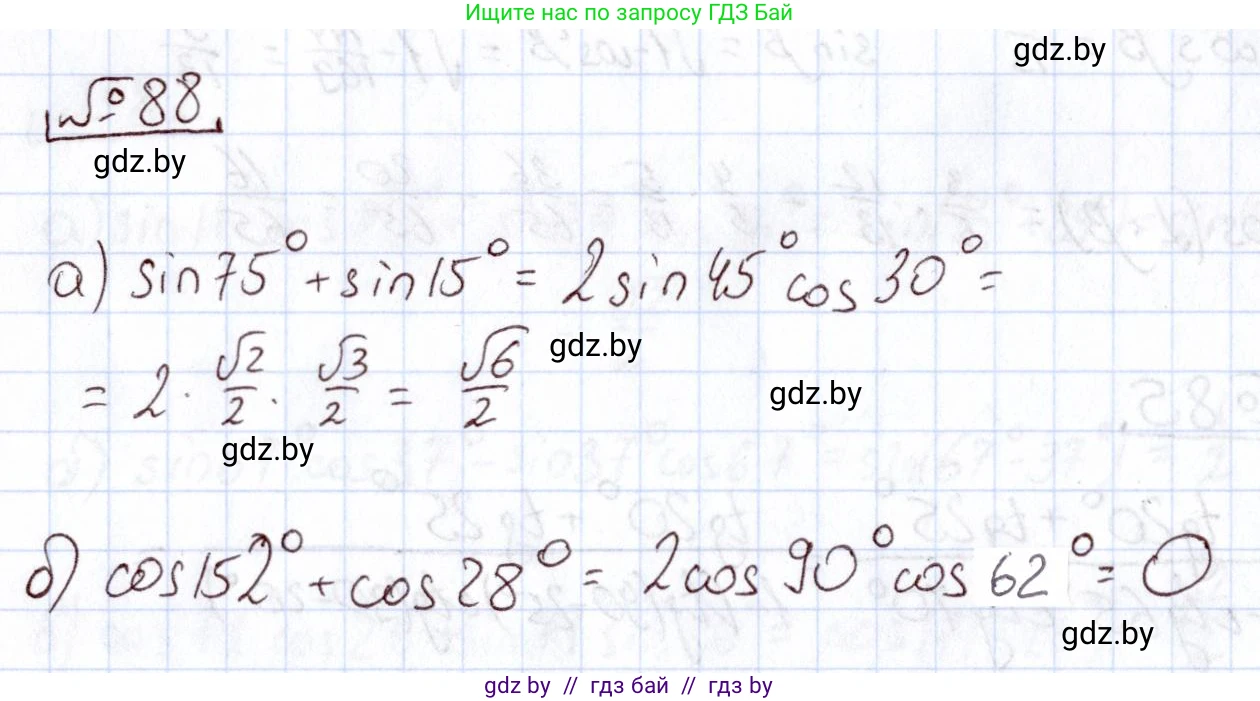 Ищите нас по запросу ГДЗ Бай
gdz.by
№ 88
gdz.by
а) sin75° + sin15° = 2 sin 45° cos 30° =
= 2 · √2/2 · √3/2 = √6/2
gdz.by
gdz.by
gdz.by
б) cos152° + cos 28° = 2cos 90° cos 62° = 0
gdz.by
gdz by // гдз бай // gdz by